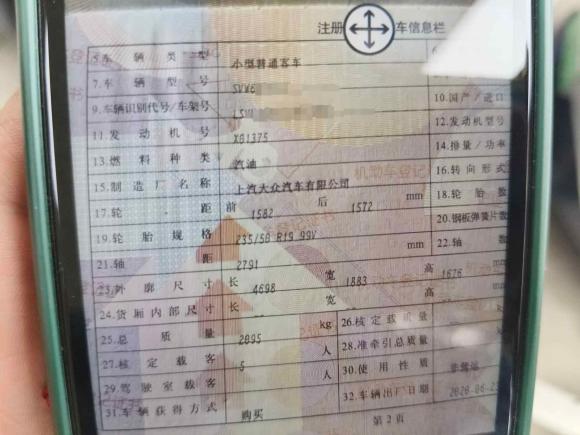 注册 车信息栏
5.车辆类型 小型普通客车
7.车辆型号 SVW6
9.车辆识别代号/车架号 LSV 10.国产/进口
11.发动机号 X01375 12.发动机型号
13.燃料种类 汽油 14.排量/功率
15.制造厂名称 上汽大众汽车有限公司 16.转向形式
17.轮距 前 1582 后 1572 mm 18.轮胎数
19.轮胎规格 235/50 R19 99V 20.钢板弹簧片数
21.轴距 2791 mm 22.轴数
23.外廓尺寸 长 4698 宽 1883 高 1676 mm
24.货厢内部尺寸 长 -- 宽 -- 高 -- mm
25.总质量 2095 kg 26.核定载质量
27.核定载客 5 人 28.准牵引总质量
29.驾驶室载客 -- 人 30.使用性质 非营运
31.车辆获得方式 购买 32.车辆出厂日期
第2页
机动车登记
登记证书